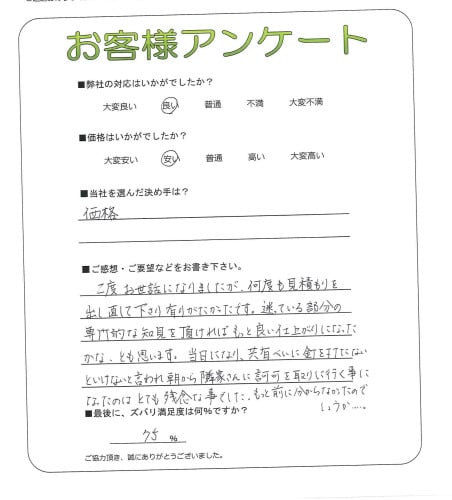 お客様アンケート
■弊社の対応はいかがでしたか？
大変良い 良い 普通 不満 大変不満
■価格はいかがでしたか？
大変安い 安い 普通 高い 大変高い
■当社を選んだ決め手は？
価格
■ご感想・ご要望などをお書き下さい。
二度お世話になりましたが、何度も見積もりを
出し直して下さり有りがたかったです。迷っている部分の
専門的な知見を頂ければもっと良い仕上がりになった
かな、とも思います。当日になり、共有べいに釘を打たない
といけないと言われ朝から隣家さんに許可を取りに行く事に
なったのはとても残念な事でした。もっと前に分からなかったので
しょうか……。
■最後に、ズバリ満足度は何%ですか？
75 %
ご協力頂き、誠にありがとうございました。